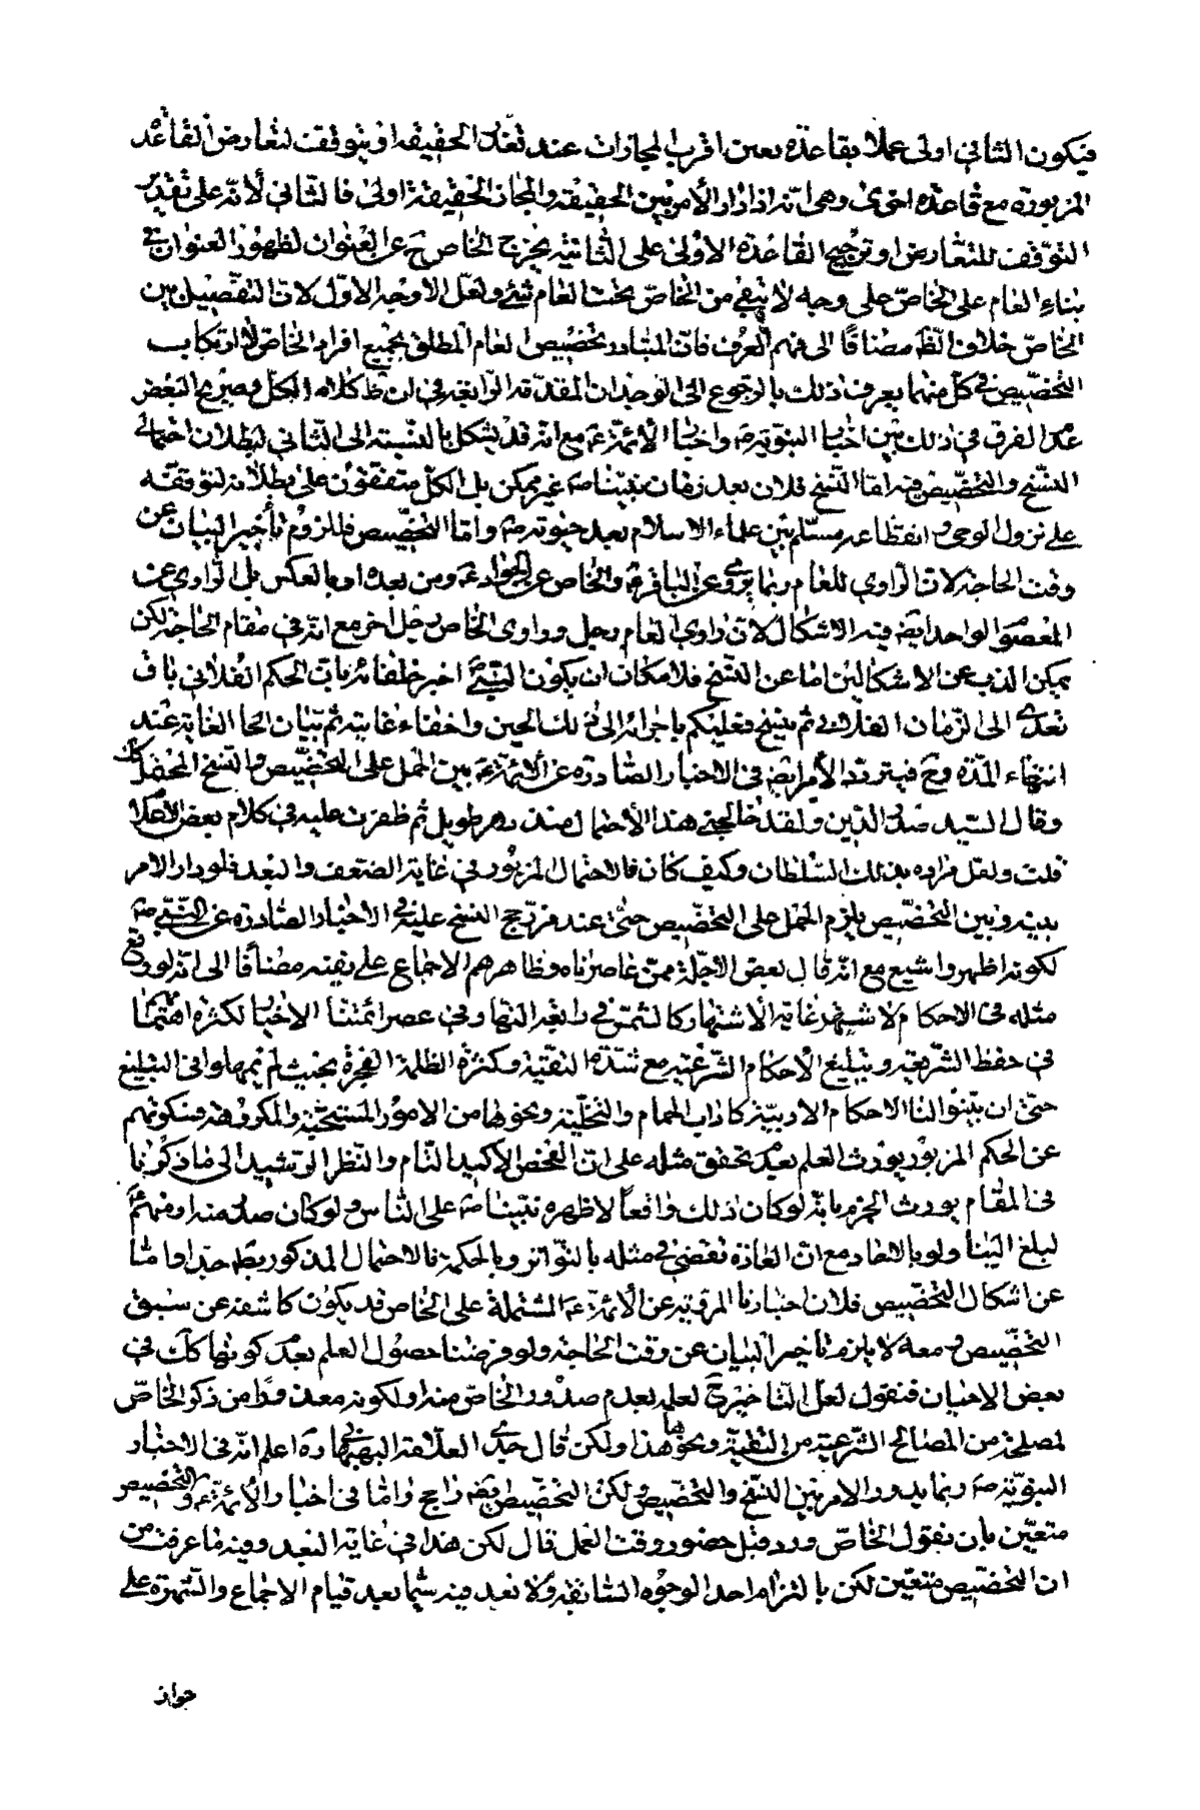 فيكون الثاني اولى عملا بقاعدة تعين اقرب المجازات عند تعذر الحقيقة او يتوقف لتعارض القاعدة
المزبورة مع قاعدة اخرى وهى انه اذا دار الأمر بين الحقيقة والمجاز الحقيقة اولى فالثاني لأنه على تقدير
التوقف للتعارض او ترجيح القاعدة الاولى على الثانية يخرج الخاص ح عن العنوان لظهور العنوان في
بناء العام على الخاص على وجه لا يبقى من الخاص تحت العام شئ ولعل الاوجه الاول لان التفصيل بين
الخاص خلاف الظ مضافًا الى فهم العرف فان المتبادر تخصيص العام المطلق بجميع افراد الخاص لا ارتكاب
التخصيص في كل منهما يعرف ذلك بالرجوع الى الوجدان المقدمة الرابعة في ان ظ كلام الكل وصريح البعض
عدم الفرق في ذلك بين اخبار النبوية ص واخبار الأئمة ع مع انه قد يشكل بالنسبة الى الثاني لبطلان احتمالي
النسخ والتخصيص فيه اما النسخ فلان بعد زمان نبينا ص غير ممكن بل الكل متفقون على بطلانه لتوقفه
على نزول الوحى وانقطاعه مسلم بين علماء الاسلام بعد حيوته ص واما التخصيص فللزوم تأخير البيان عن
وقت الحاجة لان الراوي للعام ربما يروى عن الباقر ع والخاص عن الجواد ع ومن بعده او بالعكس بل الراوي عن
المعصوم الواحد ايضا فيه الاشكال لان راوي العام رجل وراوى الخاص رجل اخر مع انه في مقام الحاجة لكن
يمكن الذب عن الاشكالين اما عن النسخ فلامكان ان يكون النبي ص اخبر خلفائه بان الحكم الفلاني باق
بعدي الى الزمان الفلاني ثم ينسخ فعليكم باجرائه الى ذلك الحين واخفاء غايته ثم بيان الغاية عند
انتهاء المدة وح فيتردد الأمر ايضا في الاخبار الصادرة عن الأئمة ع بين الحمل على التخصيص والنسخ المحفل كك
وقال السيد صدر الدين ولقد خالجني هذا الأحتمال منذ دهر طويل ثم ظفرت عليه في كلام بعض الاعلام
قلت ولعل مراده بذلك السلطان وكيف كان فالاحتمال المزبور في غاية الضعف والبعد فلو دار الامر
بينه وبين التخصيص يلزم الحمل على التخصيص حتى عند من رجح النسخ عليه في الأخبار الصادرة عن النبي ص
لكونه اظهر واشيع مع انه قال بعض الأجلة ممن عاصرناه وظاهرهم الاجماع على نفيه مضافًا الى انه لو وقع
مثله في الاحكام لاشتهر غاية الاشتهار كالشمس في رابعة النهار في عصر ائمتنا الاخيار لكثرة اهتمامهم
في حفظ الشريعة وتبليغ الأحكام الشرعية مع شدة التقية وكثرة الظلمة الفجرة بحيث لم يمهلوا في التبليغ
حتى ان بينوا لنا الاحكام الادبية كاداب الحمام والتخلية ونحوها من الامور المستحبة والمكروهة فسكوتهم
عن الحكم المزبور يورث العلم بعدم تحقق مثله على ان الفحص الأكيد التام والنظر الرشيد الى ما ذكرنا
في المقام يورث الجزم بانه لو كان ذلك واقعاً لاظهره نبينا ص على الناس ولو كان صدر منه او منهم ع
لبلغ الينا ولو بالاحاد مع ان العادة تقضى في مثله بالتواتر وبالجملة فالاحتمال المذكور بعيد جدا واما
عن اشكال التخصيص فلان اخبارنا المروية عن الأئمة ع المشتملة على الخاص قد يكون كاشفة عن سبق
التخصيص ومعه لا يلزم تأخير البيان عن وقت الحاجة ولو فرضنا حصول العلم بعدم كونها كك في
بعض الاحيان فنقول لعل التاخير ح لعلمه بعدم صدور الخاص منه او لكونه معذورًا من ذكر الخاص
لمصلحة من المصالح الشرعية من التقية ونحوها هذا ولكن قال جدي العلامة البهبهاني ره اعلم انه في الاخبار
النبوية ص ربما يدور الامر بين النسخ والتخصيص ولكن التخصيص ايضا راجح واما في اخبار الأئمة ع والتخصيص
متعين بان نقول الخاص ورد قبل حضور وقت العمل قال لكن هذا في غاية البعد وفيه ما عرفت من
ان التخصيص متعين لكن بالتزام احد الوجوه السابقة ولا بعد فيه سيما بعد قيام الاجماع والشهرة على
جواز